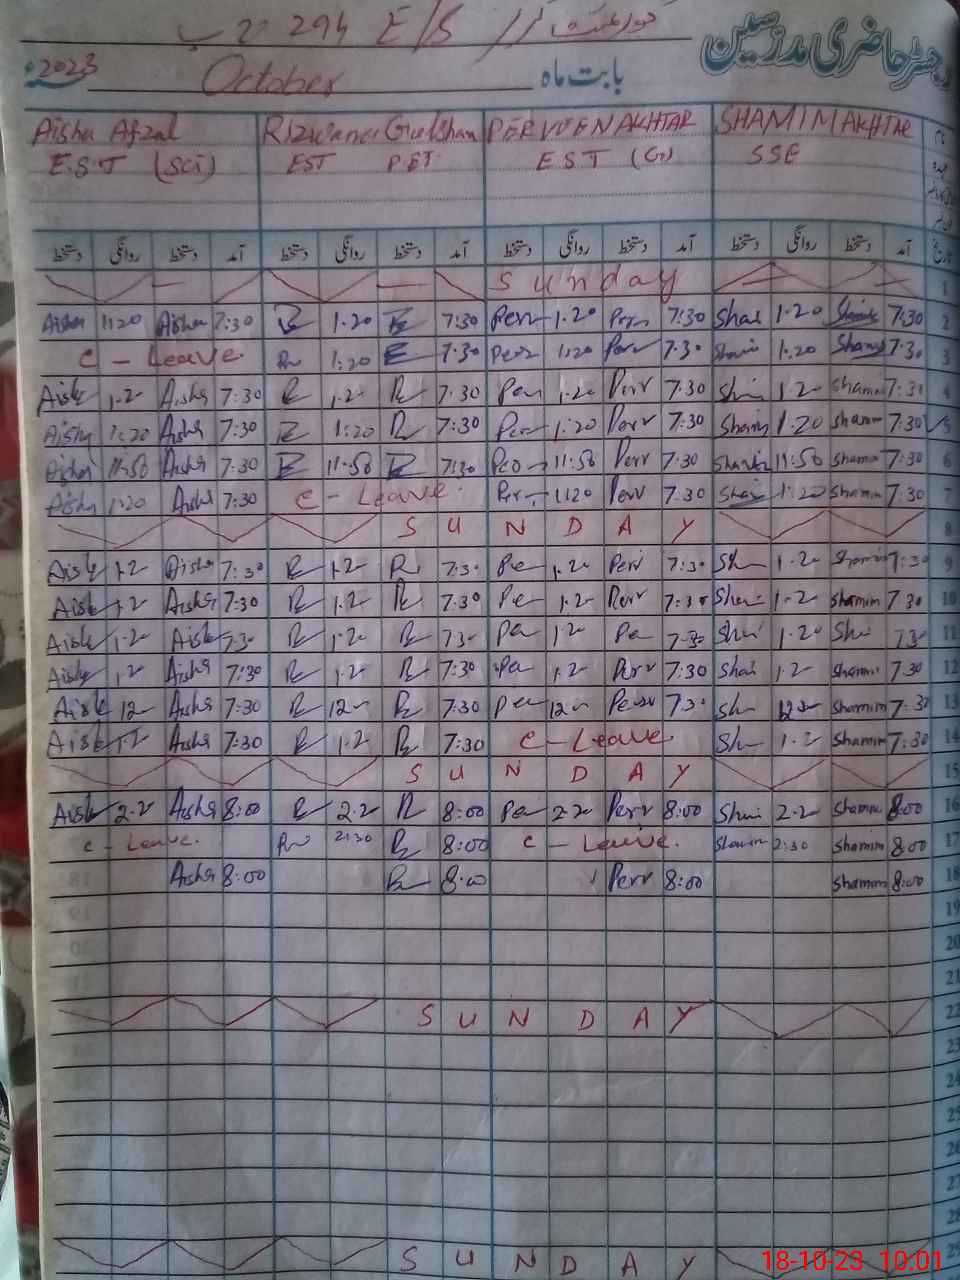 گورنمنٹ // E/S 294 ب
رجسٹر حاضری مدرسین
بابت ماہ October 2023
Aisha Afzal Rizwana Gulshan PERVEEN AKHTAR SHAMIM AKHTAR
E.S.T (SCI) EST PET EST (G) SSE
دستخط روانگی دستخط آمد دستخط روانگی دستخط آمد دستخط روانگی دستخط آمد دستخط روانگی دستخط آمد
Sunday 1
Aisha 1:20 Aisha 7:30 R 1.20 R 7:30 Perr 1.20 Perr 7:30 Shai 1.20 Shamim 7:30 2
C - Leave R 1:20 R 7.30 Perr 1:20 Perr 7.30 Shami 1.20 Shamim 7.30 3
Aish 1.20 Aisha 7:30 R 1.20 R 7:30 Per 1.20 Perr 7.30 Shi 1.20 Shamim 7:30 4
Aisha 1:20 Aisha 7:30 R 1:20 R 7:30 Per 1:20 Perr 7:30 Shami 1.20 Shamim 7:30 5
Aisha 11:50 Aisha 7:30 R 11:50 R 7:30 Per 11:50 Perr 7:30 Shami 11:50 Shamim 7:30 6
Aisha 1:20 Aisha 7:30 C - Leave Per 1:20 Perr 7.30 Shai 1:20 Shamim 7:30 7
SUNDAY 8
Aish 1.2 Aisha 7:30 R 1.2 R 7:30 Pe 1.20 Perr 7:30 Sh 1.20 Shamim 7:30 9
Aish 1.2 Aisha 7:30 R 1.2 R 7:30 Pe 1.2 Perr 7:30 Shai 1.2 Shamim 7.30 10
Aish 1.2 Aish 7.30 R 1.20 R 7.30 Pe 1.20 Pe 7.30 Shi 1.20 Shi 7.30 11
Aish 1.2 Aisha 7:30 R 1.2 R 7:30 Pe 1.2 Perr 7:30 Shai 1.2 Shamim 7.30 12
Aish 12 Aisha 7:30 R 12 R 7.30 Pe 12 Perr 7.30 Sh 12 Shamim 7:30 13
Aish 1.2 Aisha 7:30 R 1.2 R 7:30 C - Leave Sh 1.2 Shamim 7:30 14
SUNDAY 15
Aish 2.2 Aisha 8:00 R 2.2 R 8:00 Pe 2.20 Perr 8:00 Shai 2.2 Shamim 8:00 16
C - Leave. R 2:30 R 8:00 C - Leave. Shamim 2:30 Shamim 8:00 17
Aisha 8:00 R 8:00 Perr 8:00 Shamim 8:00 18
19
20
21
SUNDAY 22
23
24
25
26
27
28
SUNDAY 29
18-10-23 10:01